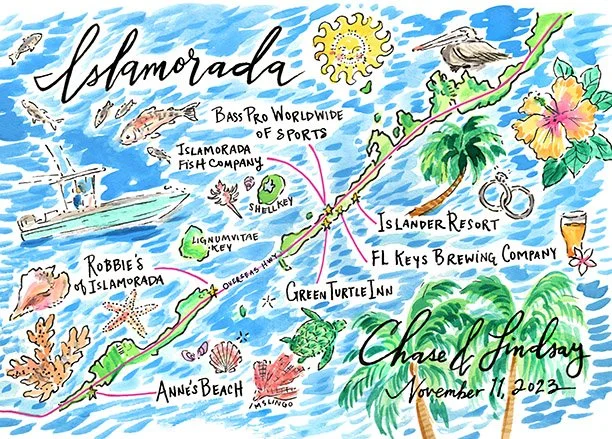 Islamorada
Bass Pro Worldwide
of Sports
Islamorada
Fish Company
Shell Key
Lignumvitae
Key
Islander Resort
FL Keys Brewing Company
Robbie's
of Islamorada
Overseas Hwy
Green Turtle Inn
Chase & Lindsay
November 11, 2023
Anne's Beach
Mslingo